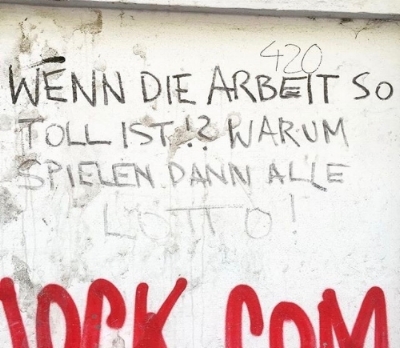 420
WENN DIE ARBEIT SO
TOLL IST!? WARUM
SPIELEN DANN ALLE
LOTTO!
OCK.COM